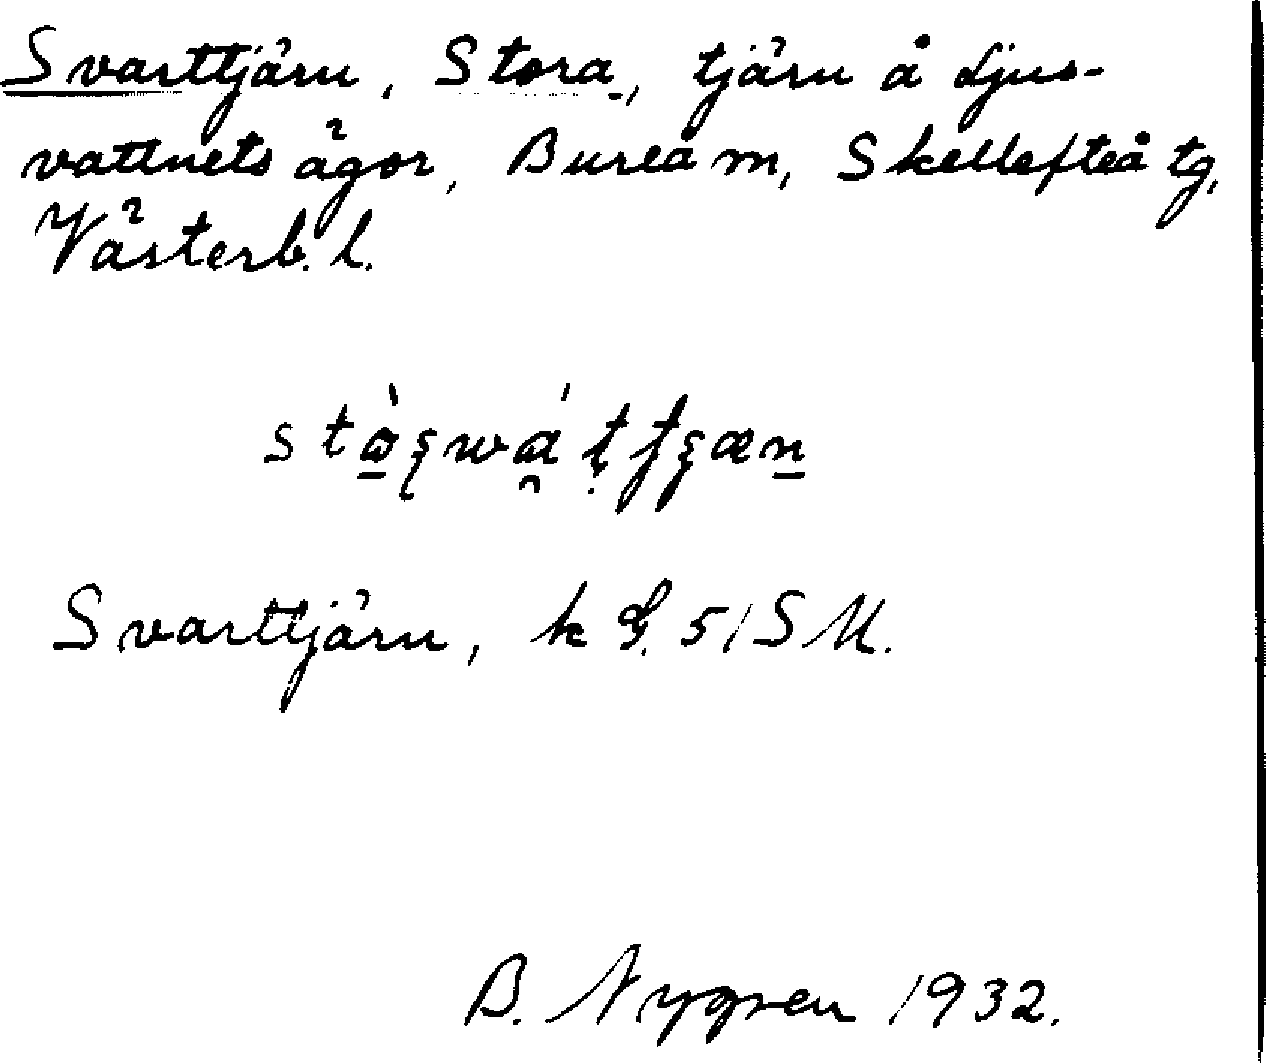 Svarttjärn, Stora, tjärn å Ljus-
vattnets ägor, Bureå m, Skellefteå tg,
Västerb. l.
Svarttjärn, k G. 51 S M.
B. Nygren 1932.